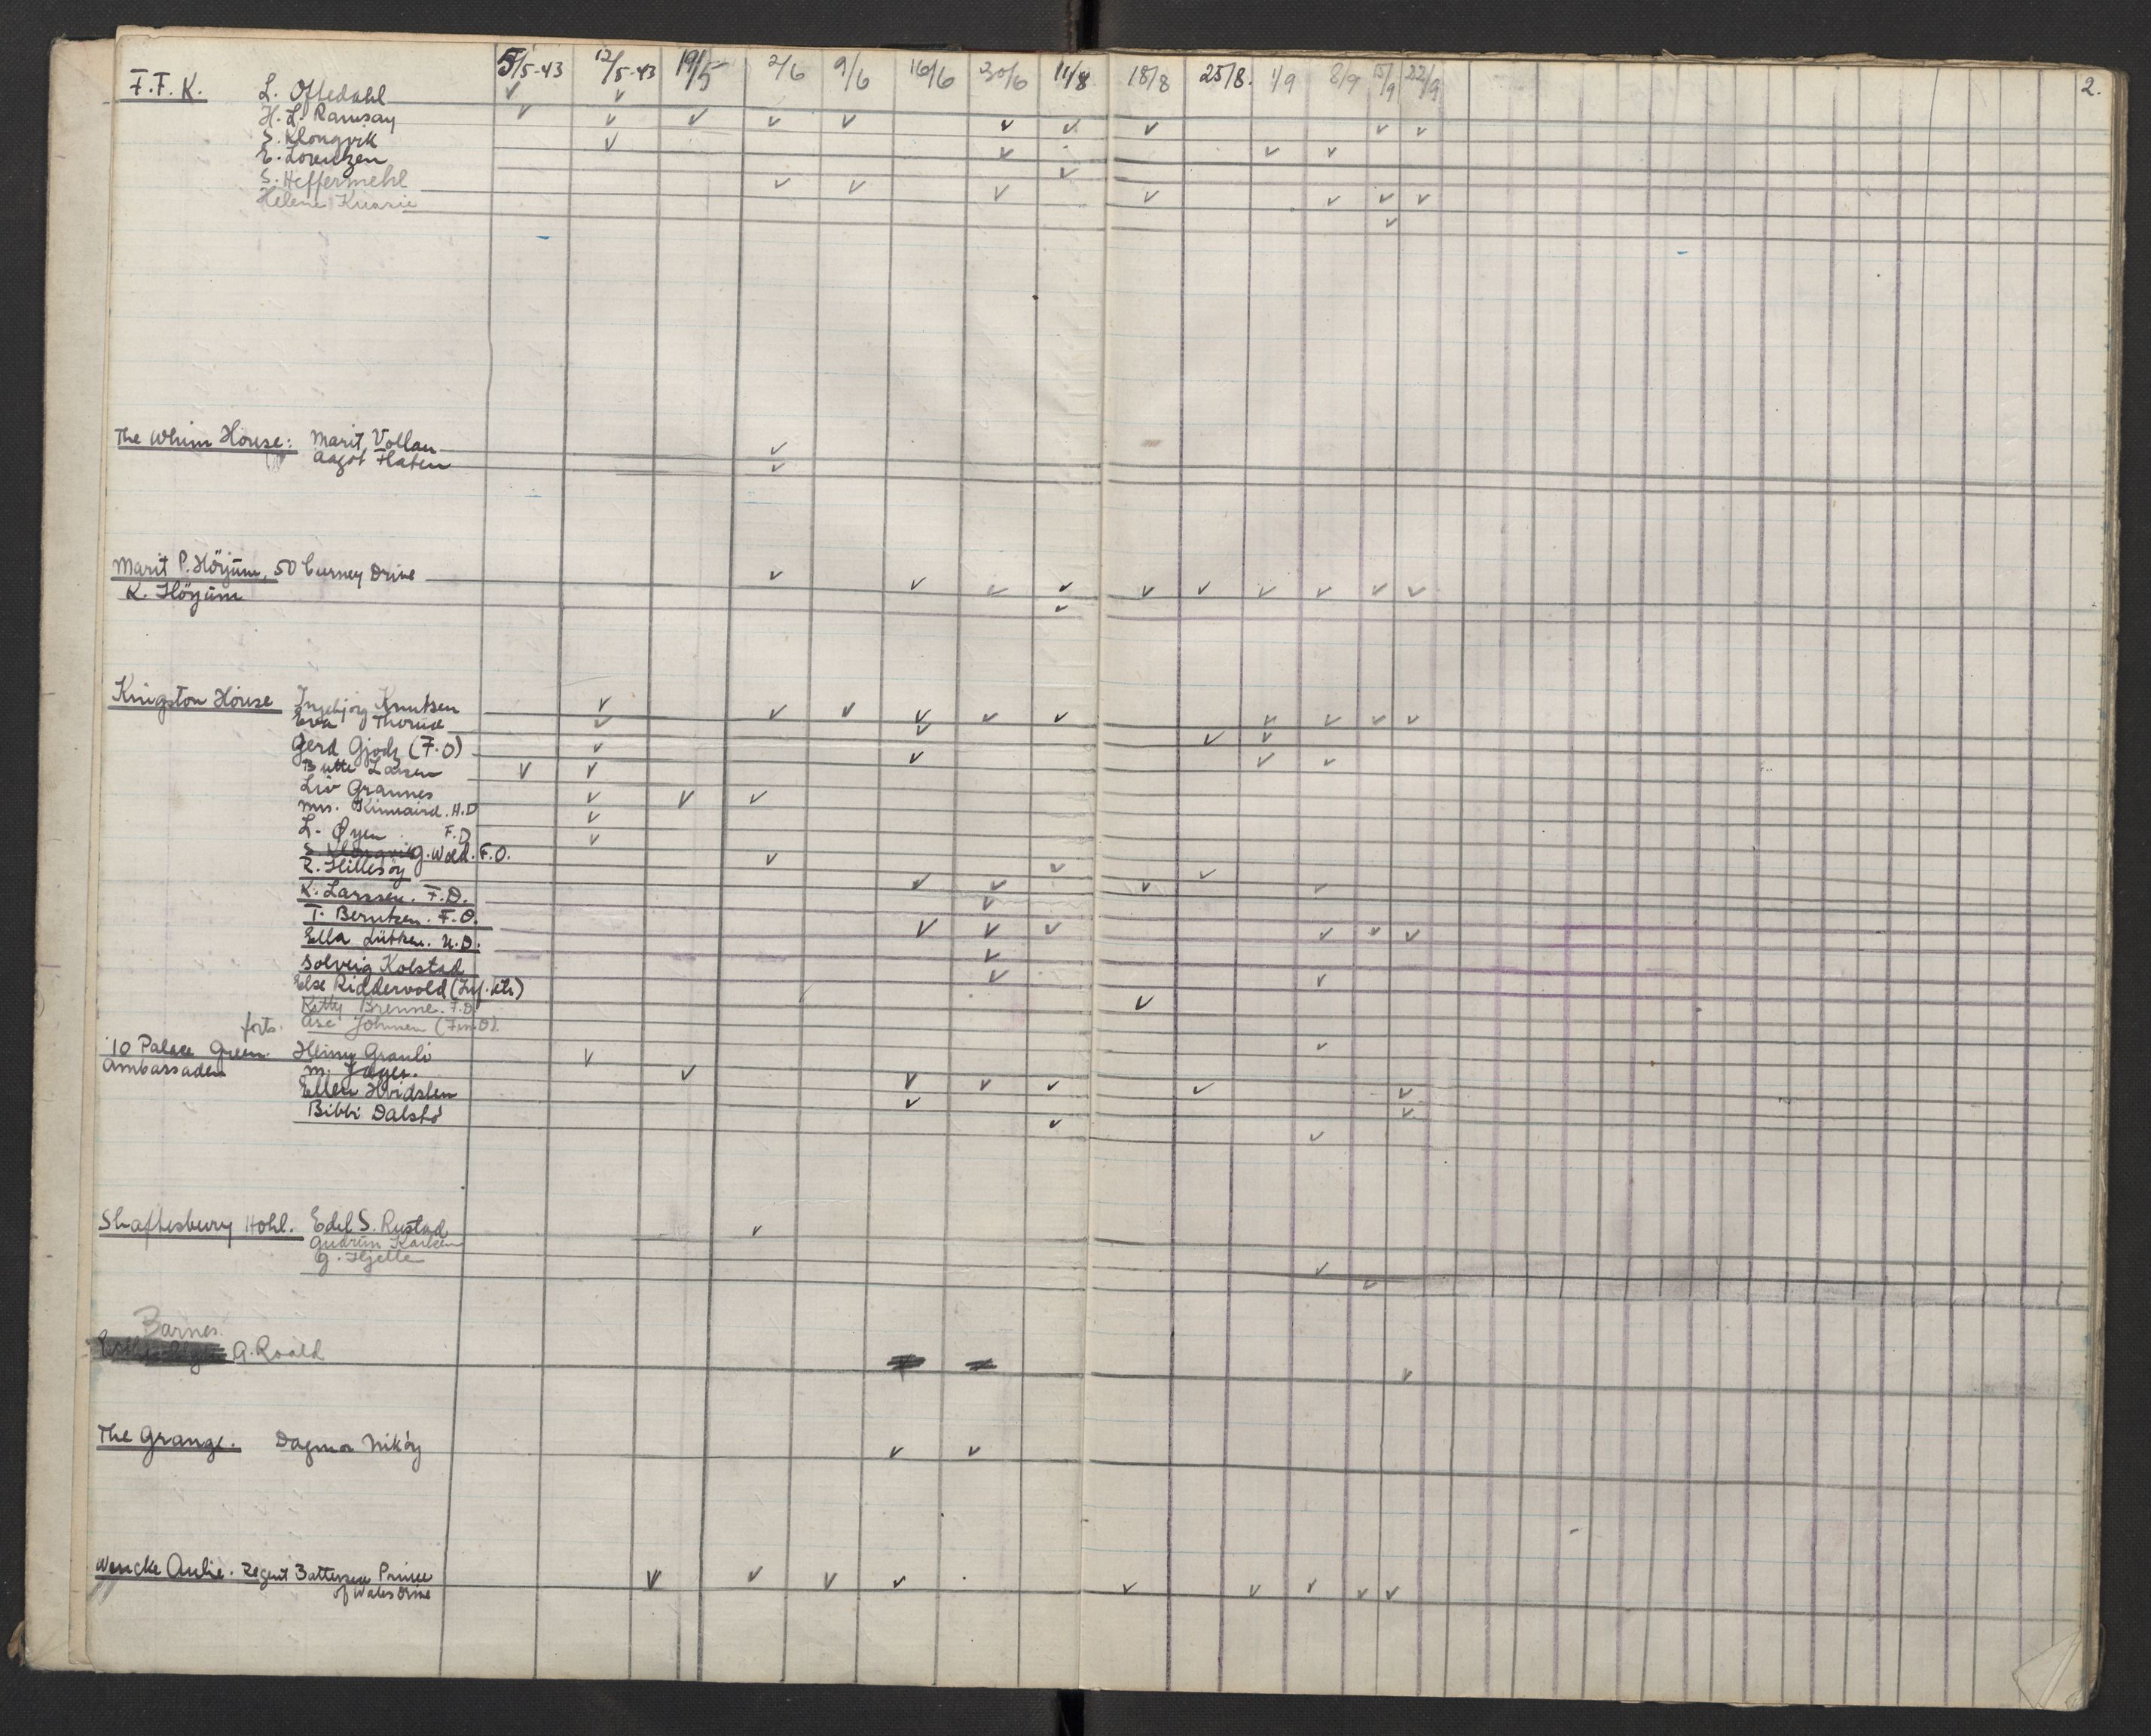 5/5-43 12/5-43 19/5 2/6 9/6 16/6 30/6 11/8 18/8 25/8. 1/9 8/9 15/9 22/9 2.
F.F.K. L. Oftedahl
H. L. Ramsay
S. Klongvik
E. Lorentzen
S. Heffermehl
Helene
The Whim House: Marit Vollan
Aagot Flaten
Marit P. Höyum, 50 Curney Drive
K. Höyum
Kingston House Ingebjörg Knutsen
Eva
Gerd (F.O)
Bitte Larsen
Liv Grannes
Mrs. Kinnaird. H.D
L. Øyen F.D
S. Klongvik G. Wold. F.O.
R. Hillesøy
K. Larssen. F.D.
T. Berntzen. F.O.
Ella Lütken. U.D.
Solveig Kolstad
Else Riddervold
Kitty Brenne. F.D
forts. Ase Johnsen (Fin.D).
10 Palace Green Grauli
Ambassaden M. Jager.
Ellen Hvidsten
Bibbi Dalstö
Shaftesbury Hotel. Edel S. Rustad
Gudrun Karlsen
G. Hjelle
Barnes.
A. Roald
The Grange. Dagmar Niköy
Wencke Aulie. Regent Battersea Prince
of Wales Drive